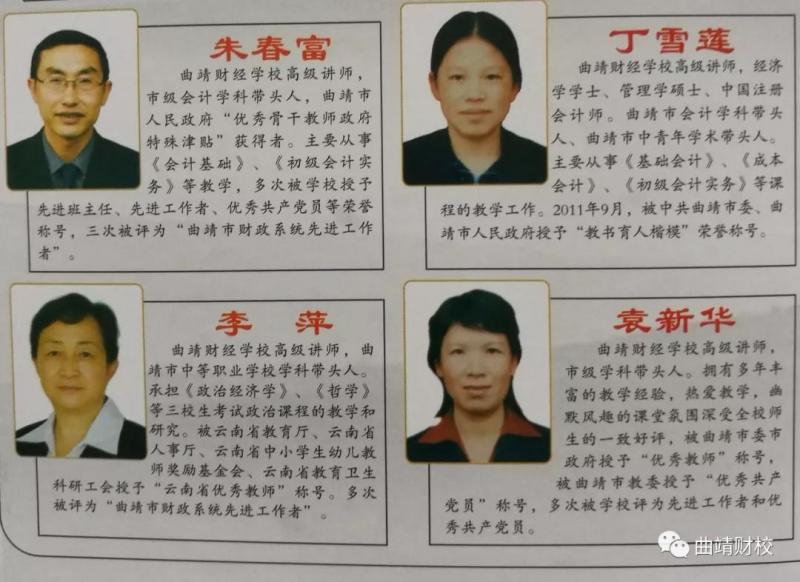 朱春富
曲靖财经学校高级讲师，
市级会计学科带头人，曲靖市
人民政府“优秀骨干教师政府
特殊津贴”获得者。主要从事
《会计基础》、《初级会计实
务》等教学，多次被学校授予
先进班主任、先进工作者、优秀共产党员等荣誉
称号，三次被评为“曲靖市财政系统先进工作
者”。
丁雪莲
曲靖财经学校高级讲师，经济
学学士、管理学硕士、中国注册
会计师。曲靖市会计学科带头
人、曲靖市中青年学术带头人。
主要从事《基础会计》、《成本
会计》、《初级会计实务》等课
程的教学工作。2011年9月，被中共曲靖市委、曲
靖市人民政府授予“教书育人楷模”荣誉称号。
李 萍
曲靖财经学校高级讲师，曲
靖市中等职业学校学科带头人。
承担《政治经济学》、《哲学》
等三校生考试政治课程的教学和
研究。被云南省教育厅、云南省
人事厅、云南省中小学生幼儿教
师奖励基金会、云南省教育卫生
科研工会授予“云南省优秀教师”称号。多次
被评为“曲靖市财政系统先进工作者”。
袁新华
曲靖财经学校高级讲师，
市级学科带头人。拥有多年丰
富的教学经验，热爱教学，幽
默风趣的课堂氛围深受全校师
生的一致好评，被曲靖市委市
政府授予“优秀教师”称号，
被曲靖市教委授予“优秀共产
党员”称号，多次被学校评为先进工作者和优
秀共产党员。
曲靖财校